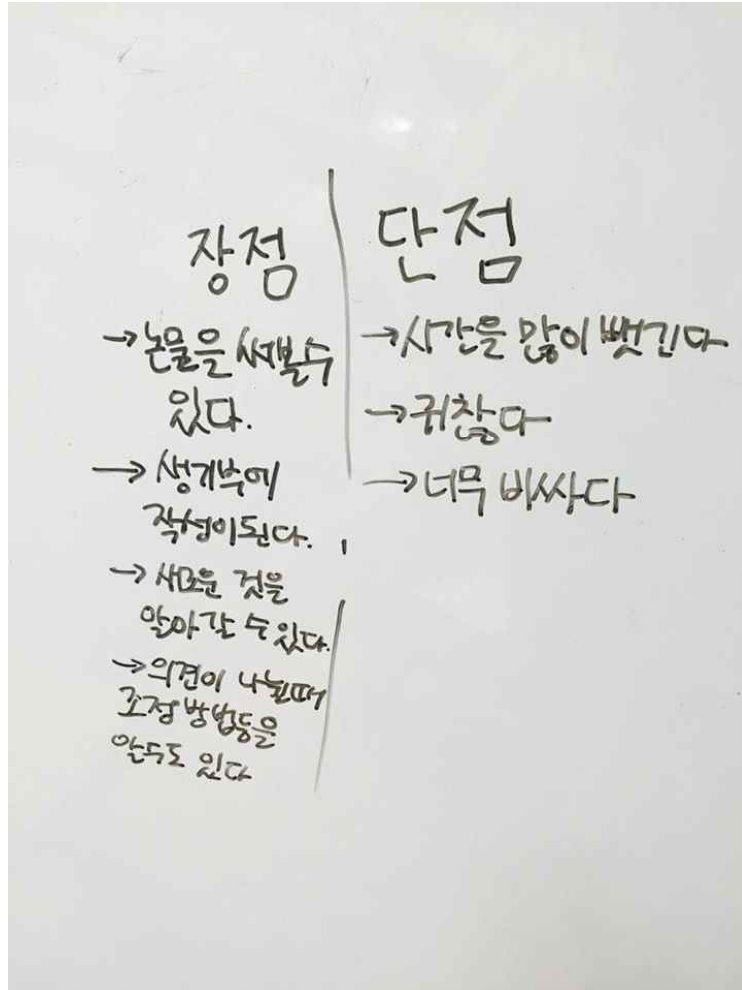 장점
→논물을 써볼수
있다.
→ 생기부에
작성이된다.
→ 새로운 것을
알아갈 수 있다.
→의견이 나뉠때
조정 방법등을
알수도 있다
단점
→시간을 많이 뺏긴다
→귀찮다
→너무 비싸다